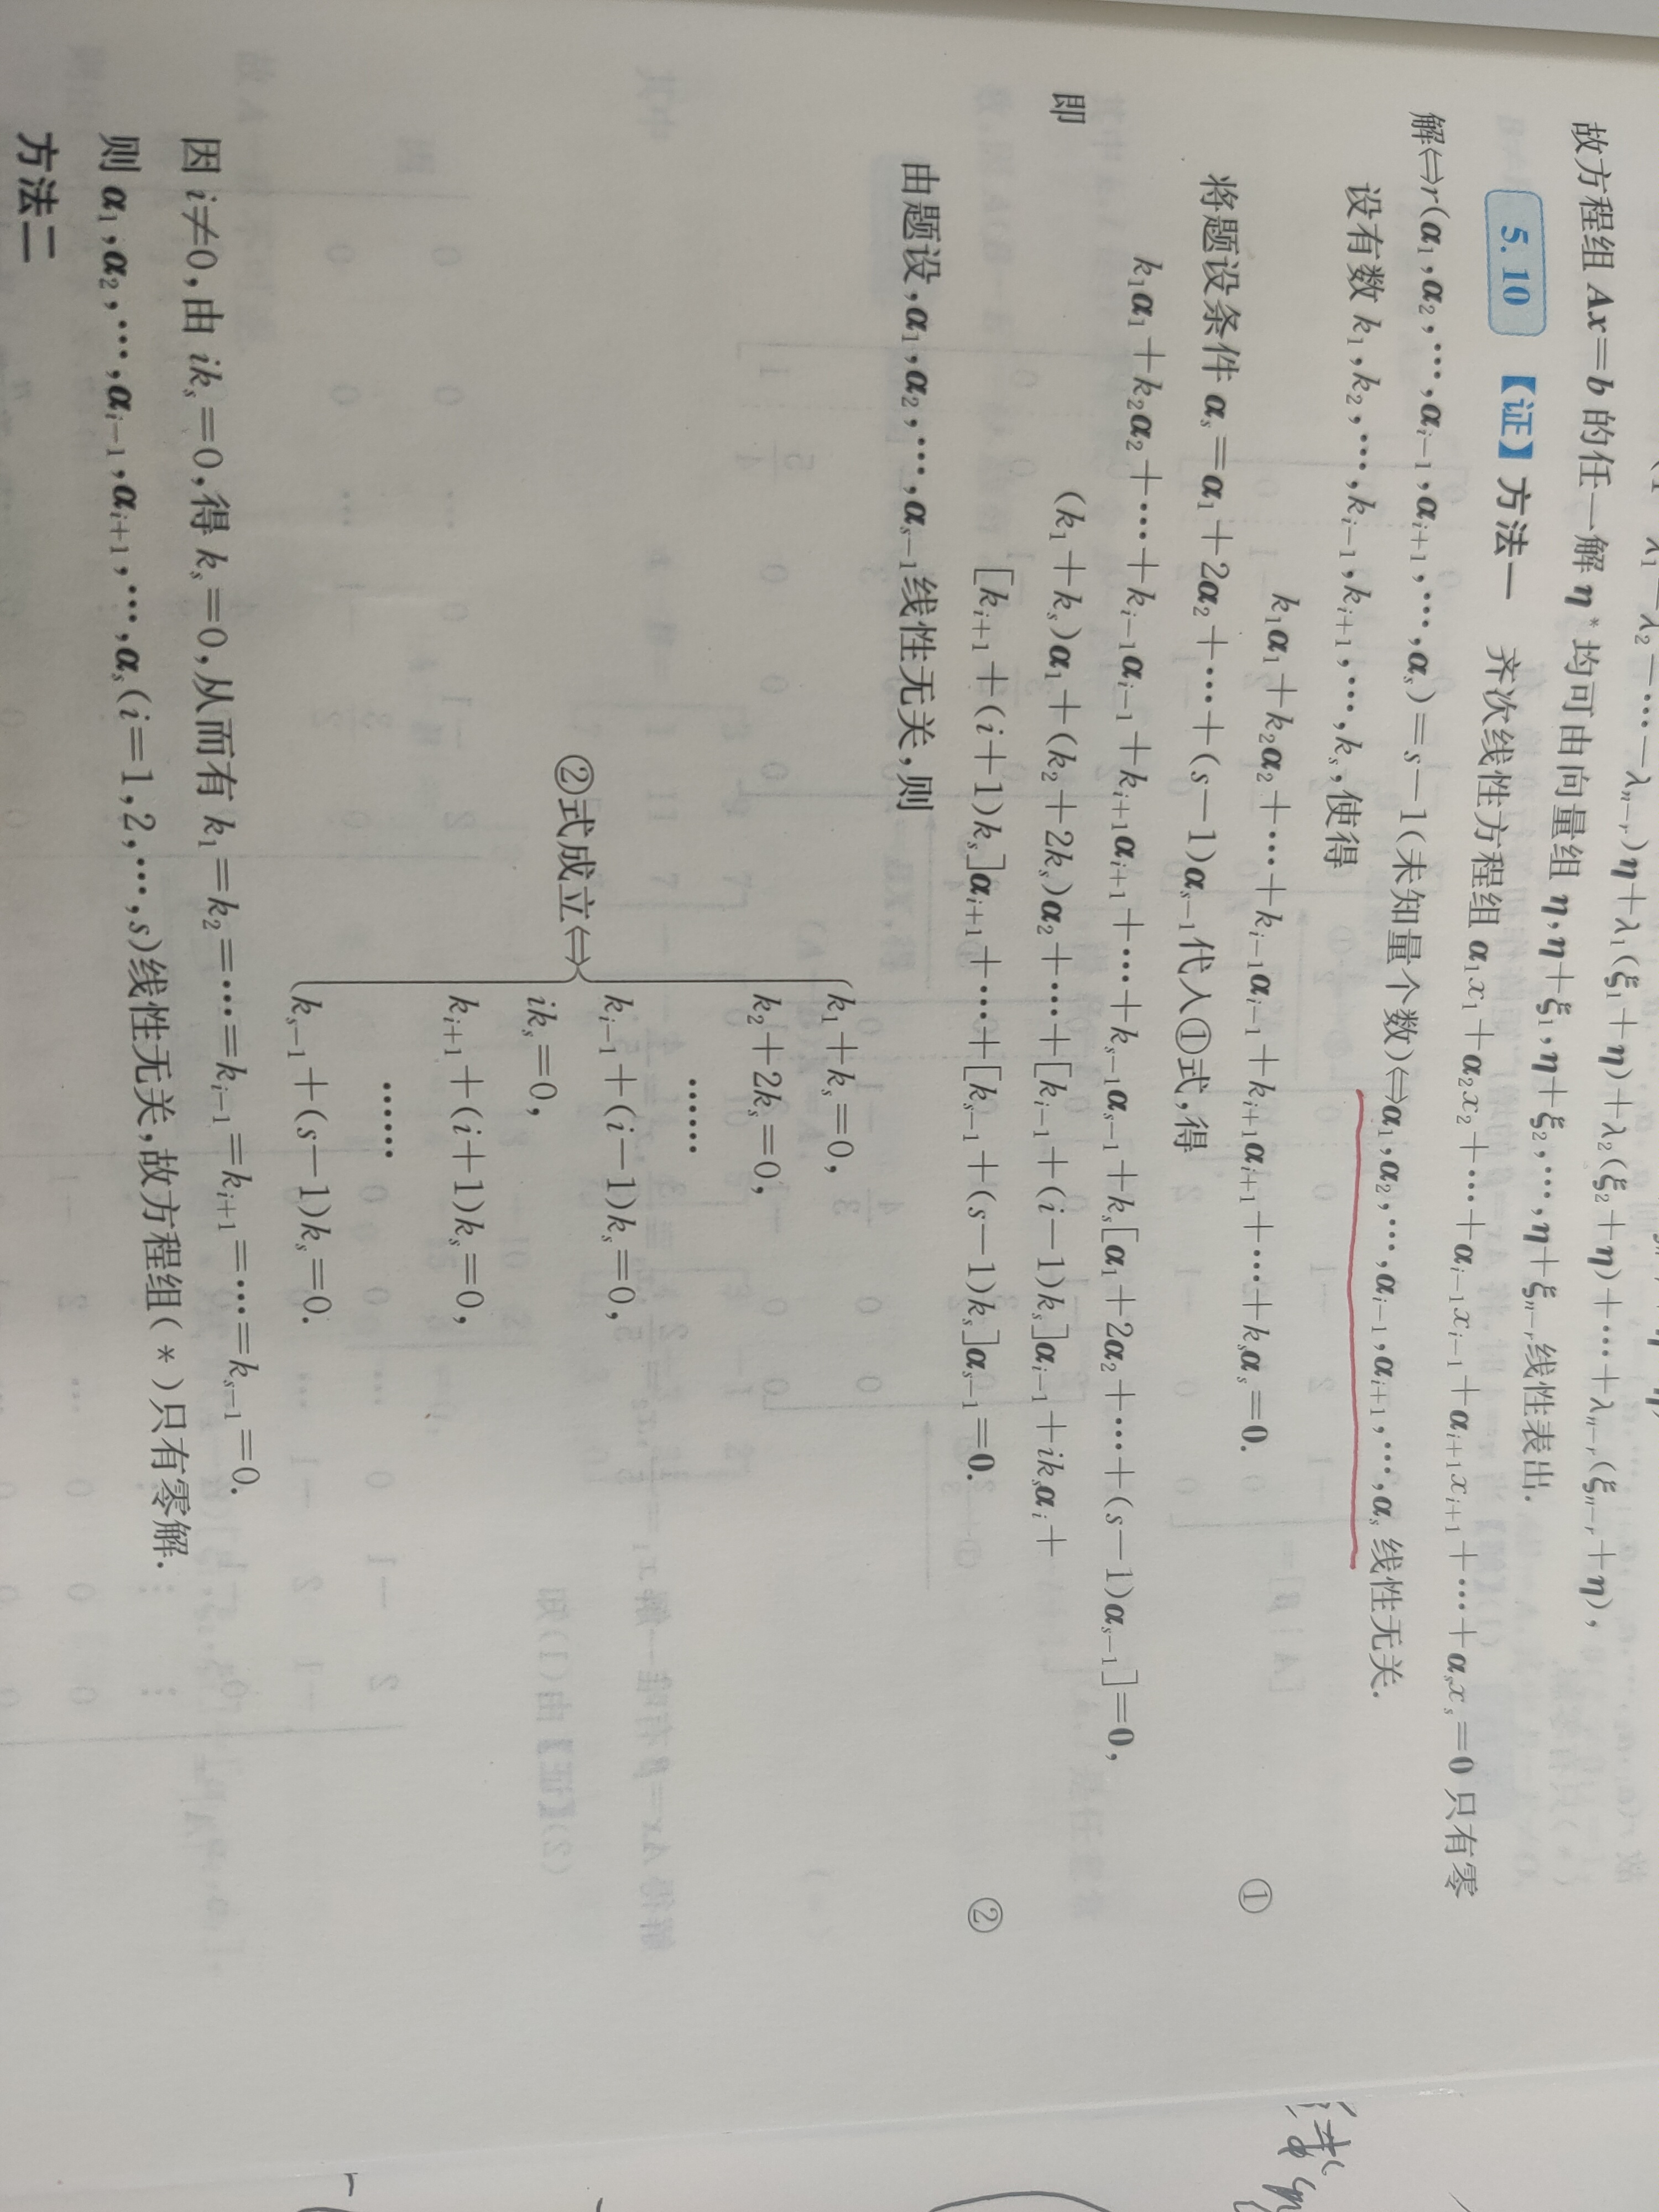 故方程组 Ax=b 的任一解 η* 均可由向量组 η,η+ξ₁,η+ξ₂,…,η+ξₙ₋ᵣ线性表出.
5.10 【证】方法一 齐次线性方程组 α₁x₁+α₂x₂+…+αᵢ₋₁xᵢ₋₁+αᵢ₊₁xᵢ₊₁+…+αₛxₛ=0 只有零
解⇔r(α₁,α₂,…,αᵢ₋₁,αᵢ₊₁,…,αₛ)=s−1(未知量个数)⇔α₁,α₂,…,αᵢ₋₁,αᵢ₊₁,…,αₛ线性无关.
设有数 k₁,k₂,…,kᵢ₋₁,kᵢ₊₁,…,kₛ,使得
k₁α₁+k₂α₂+…+kᵢ₋₁αᵢ₋₁+kᵢ₊₁αᵢ₊₁+…+kₛαₛ=0. ①
将题设条件 αₛ=α₁+2α₂+…+(s−1)αₛ₋₁代入①式,得
k₁α₁+k₂α₂+…+kᵢ₋₁αᵢ₋₁+kᵢ₊₁αᵢ₊₁+…+kₛ₋₁αₛ₋₁+kₛ[α₁+2α₂+…+(s−1)αₛ₋₁]=0,
即 (k₁+kₛ)α₁+(k₂+2kₛ)α₂+…+[kᵢ₋₁+(i−1)kₛ]αᵢ₋₁+ikₛαᵢ+
[kᵢ₊₁+(i+1)kₛ]αᵢ₊₁+…+[kₛ₋₁+(s−1)kₛ]αₛ₋₁=0. ②
由题设,α₁,α₂,…,αₛ₋₁线性无关,则
k₁+kₛ=0,
k₂+2kₛ=0,
……
kᵢ₋₁+(i−1)kₛ=0,
②式成立⇔
ikₛ=0,
kᵢ₊₁+(i+1)kₛ=0,
……
kₛ₋₁+(s−1)kₛ=0.
因 i≠0,由 ikₛ=0,得 kₛ=0,从而有 k₁=k₂=…=kᵢ₋₁=kᵢ₊₁=…=kₛ₋₁=0.
则 α₁,α₂,…,αᵢ₋₁,αᵢ₊₁,…,αₛ(i=1,2,…,s)线性无关,故方程组(*)只有零解.
方法二